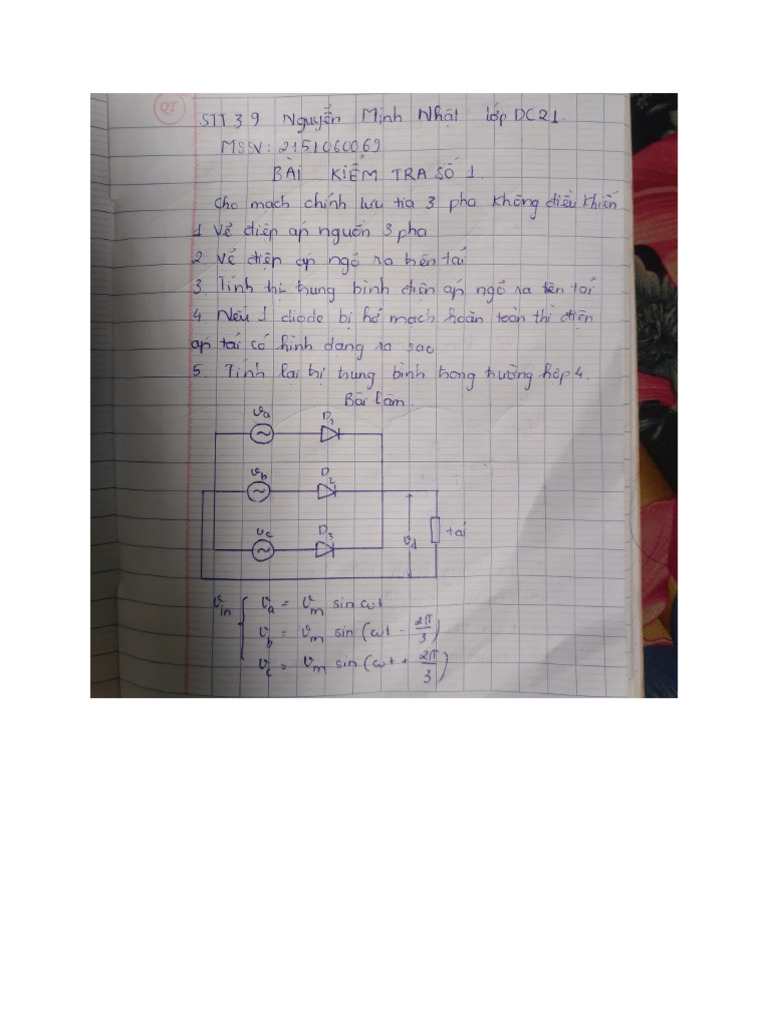 QT
STT 39 Nguyễn Minh Nhật lớp DC21
MSSV: 2151060069
BÀI KIỂM TRA SỐ 1
Cho mạch chỉnh lưu tia 3 pha không điều khiển
1 Vẽ điện áp nguồn 3 pha
2 Vẽ điện áp ngõ ra trên tải
3. Tính trị trung bình điện áp ngõ ra trên tải
4. Nếu 1 diode bị hở mạch hoàn toàn thì điện
áp tải có hình dạng ra sao
5. Tính lại trị trung bình trong trường hợp 4.
Bài làm
va D1
vb D2
vc D3 vd tải
vin { va = vm sin ωt
vb = vm sin (ωt - 2π/3)
vc = vm sin (ωt + 2π/3)